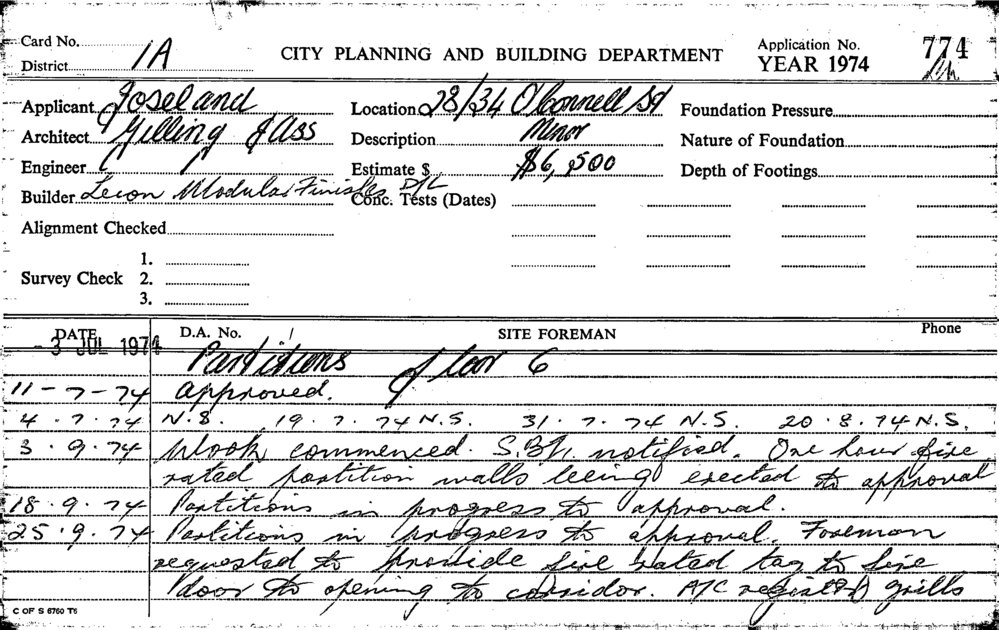 Card No.
District 1A
CITY PLANNING AND BUILDING DEPARTMENT
Application No. 774
YEAR 1974
Applicant Joseland
Location 28/34 O'Connell St
Foundation Pressure
Architect Gilling & Ass
Description Minor
Nature of Foundation
Engineer
Estimate $ $6,500
Depth of Footings
Builder Leson Modular Finishes P/L
Conc. Tests (Dates)
Alignment Checked
1.
Survey Check 2.
3.
DATE D.A. No. SITE FOREMAN Phone
- 3 JUL 1974
Partitions floor 6
11-7-74 Approved.
4.7.74 N.S. 19.7.74 N.S. 31.7.74 N.S. 20.8.74 N.S.
3.9.74 Work commenced. notified. One hour fire
rated partition walls being erected to approval
18.9.74 Partitions in progress to approval.
25.9.74 Partitions in progress to approval. Foreman
requested to provide fire rated tag to fire
door to opening to corridor. A/C grills
C OF S 6760 T6